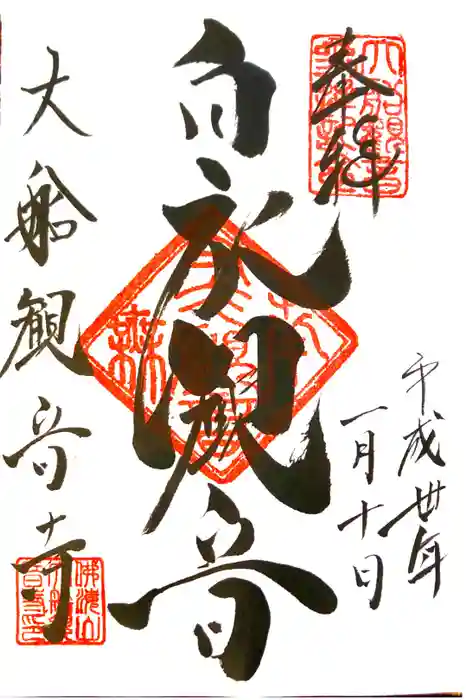 奉拝
白衣観音
平成卅年
一月十日
大船観音寺
佛海山